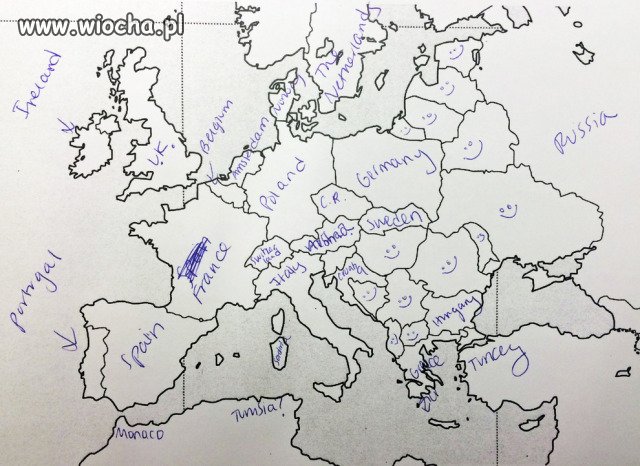 www.wiocha.pl
Ireland
U.K.
Belgium
Amsterdam
Norway
The
Netherlands
Russia
Poland
Germany
C.R.
Sweden
France
Italy
Croatia
Portugal
Spain
Hungary
Greece
Turkey
Tunisia?
Monaco